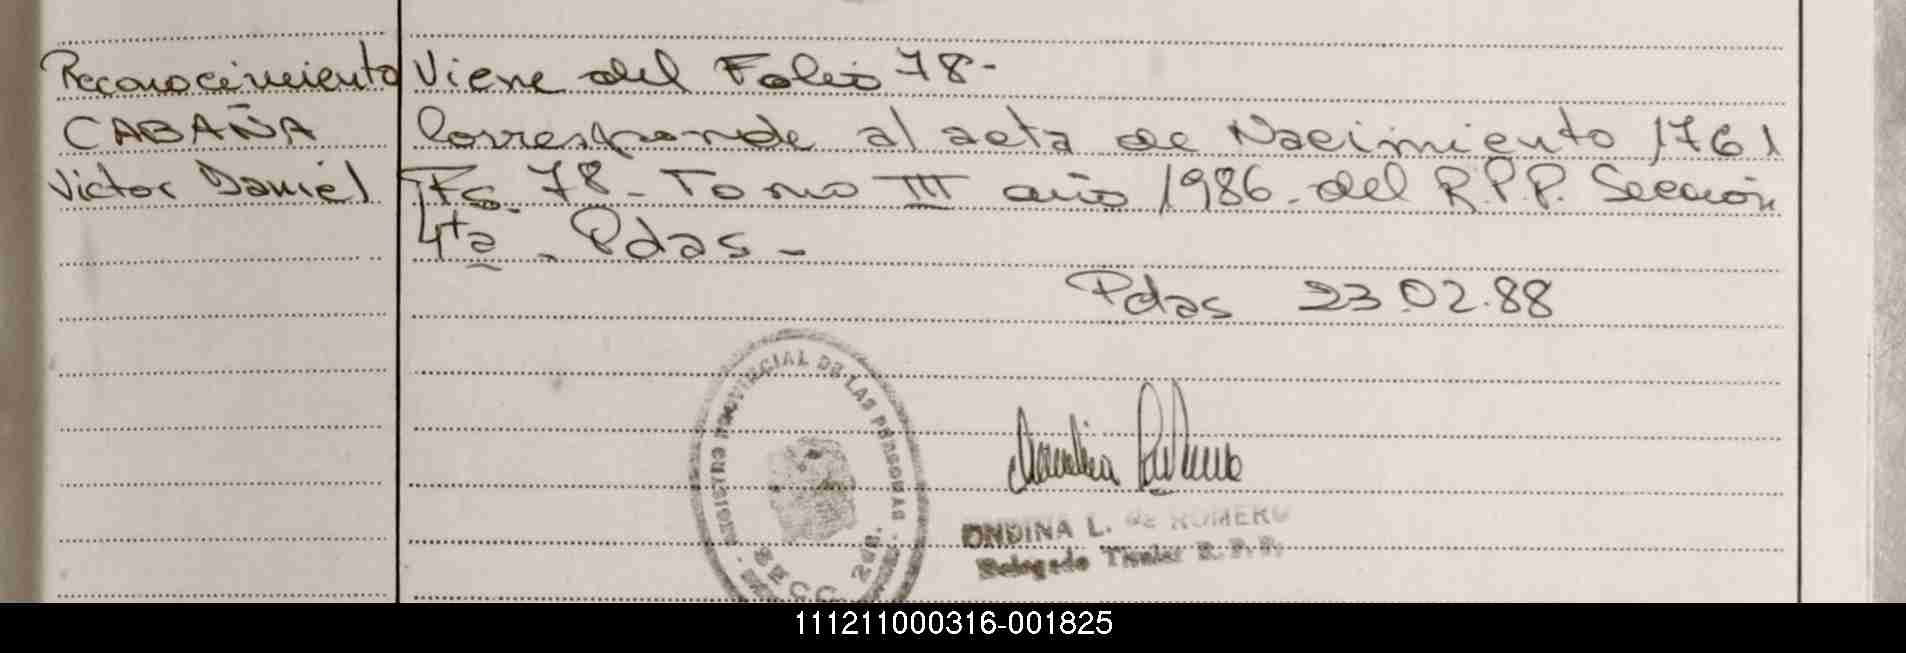 Reconocimiento
CABAÑA
Victor Daniel
Viene del Folio 78-
Corresponde al acta de Nacimiento 1761
Fs. 78 - Tomo III año 1986 - del R.P.P. Sección
4ta - Pdas -
Pdas 23.02.88
REGISTRO PROVINCIAL DE LAS PERSONAS
SECC.
ONDINA L. de ROMERO
Delegado Titular R. P. P.
111211000316-001825